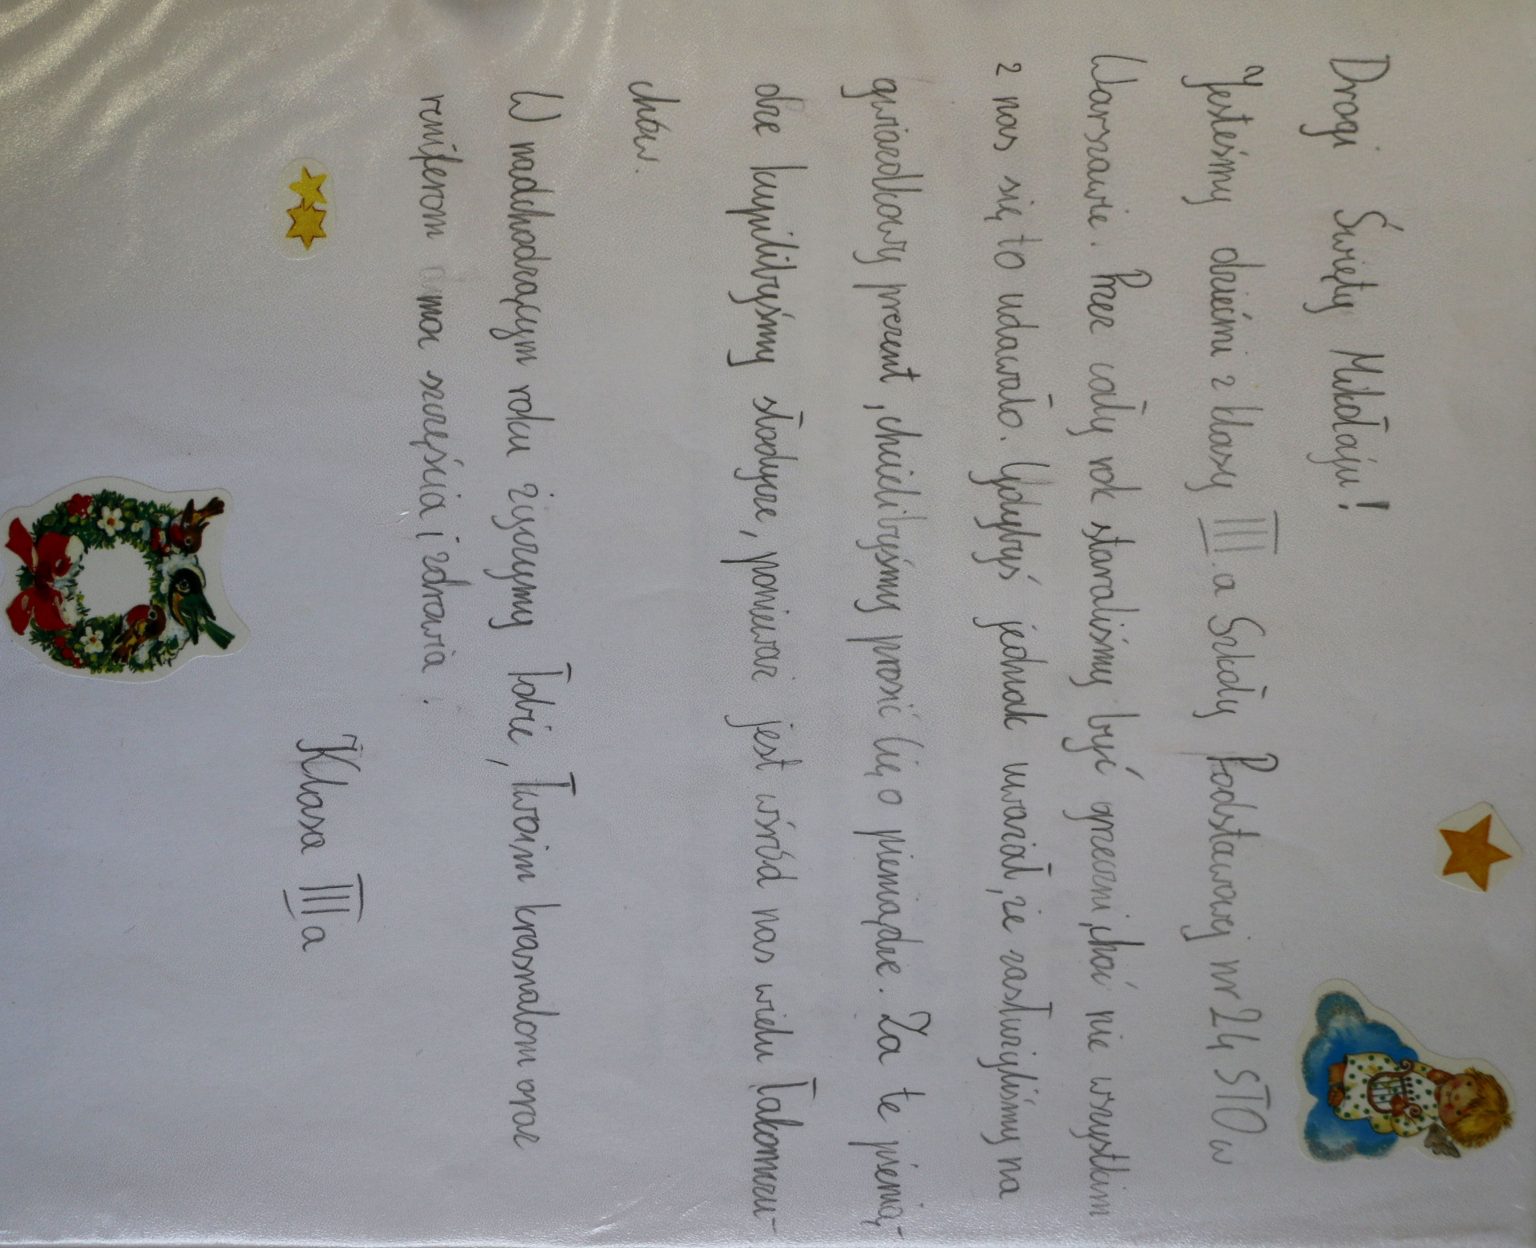 Drogi Święty Mikołaju!
Jesteśmy dziećmi z klasy III.a Szkoły Podstawowej nr 24 STO w
Warszawie. Przez cały rok staraliśmy być grzeczni, choć nie wszystkim
z nas się to udawało. Gdybyś jednak uważał, że zasłużyliśmy na
gwiazdkowy prezent, chcielibyśmy prosić Cię o pieniądze. Za te pienią-
dze kupilibyśmy słodycze, ponieważ jest wśród nas wielu Łakomczu-
chów.
W nadchodzącym roku życzymy Tobie, Twoim krasnalom oraz
reniferom moc szczęścia i zdrowia.
Klasa III a